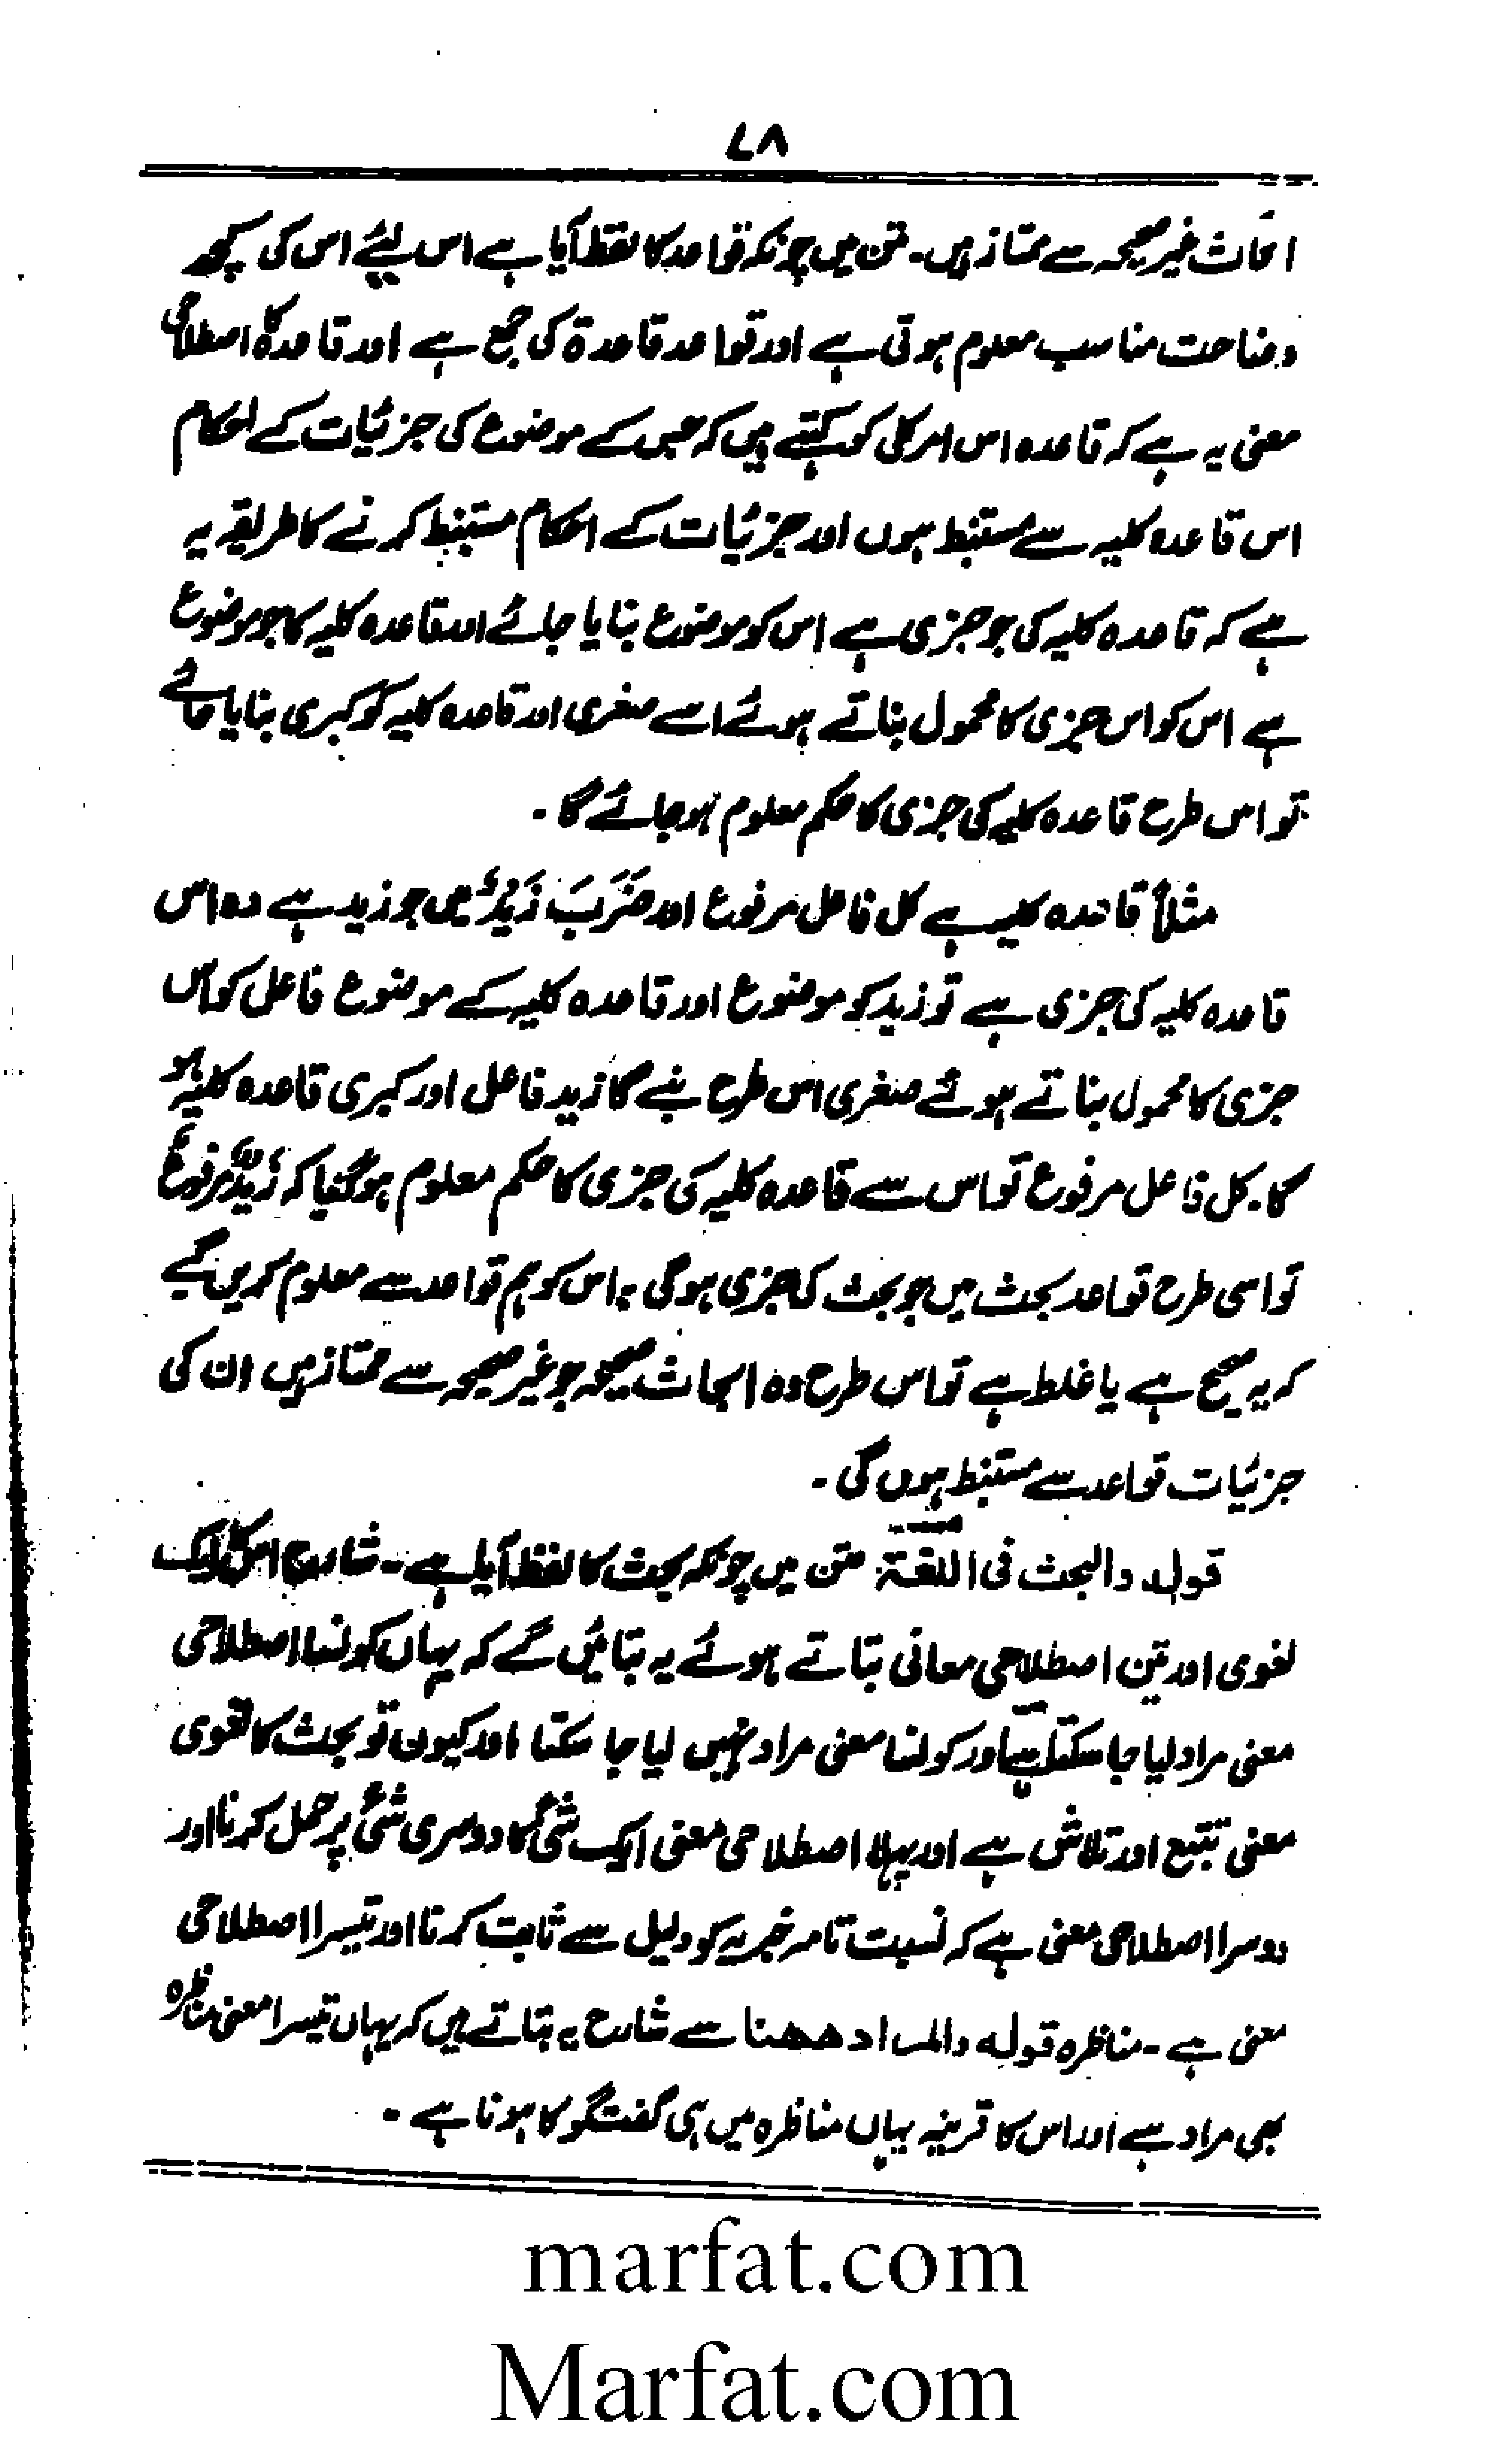 ۷۸
ابحاث غیر صحیحہ سے ممتاز ہیں۔ متن میں چونکہ قواعد کا لفظ آیا ہے اس لیئے اس کی کچھ
وضاحت مناسب معلوم ہوتی ہے اور قواعد قاعدة کی جمع ہے اور قاعدہ کا اصطلاحی
معنی یہ ہے کہ قاعدہ اس امر کلی کو کہتے ہیں کہ جس کے موضوع کی جزئیات کے احکام
اس قاعدہ کلیہ سے مستنبط ہوں اور جزئیات کے احکام مستنبط کرنے کا طریقہ یہ
ہے کہ قاعدہ کلیہ کی جو جزی ہے اس کو موضوع بنایا جائے اور قاعدہ کلیہ کا جو موضوع
ہے اس کو اس جزی کا محمول بناتے ہوئے اسے صغری اور قاعدہ کلیہ کو کبری بنایا جائے
تو اس طرح قاعدہ کلیہ کی جزی کا حکم معلوم ہو جائے گا۔
مثلاً قاعدہ کلیہ ہے کل فاعل مرفوع اور ضَرَبَ زَیْدٌ میں جو زید ہے وہ اس
قاعدہ کلیہ کی جزی ہے تو زید کو موضوع اور قاعدہ کلیہ کے موضوع فاعل کو اس
جزی کا محمول بناتے ہوئے صغری اس طرح بنے گا زید فاعل اور کبری قاعدہ کلیہ ہو
گا۔ کل فاعل مرفوع تو اس سے قاعدہ کلیہ کی جزی کا حکم معلوم ہو گیا کہ زَیْدٌ مرفوعٌ
تو اسی طرح قواعد بحث میں جو بحث کی جزی ہو گی، اس کو ہم قواعد سے معلوم کریں گے
کہ یہ صحیح ہے یا غلط ہے تو اس طرح وہ ابحاث صحیحہ جو غیر صحیحہ سے ممتاز ہیں ان کی
جزئیات قواعد سے مستنبط ہوں گی۔
قولہ والبحث فی اللغة: متن میں چونکہ بحث کا لفظ آیا ہے۔ شارح اس کا ایک
لغوی اور تین اصطلاحی معانی بتاتے ہوئے یہ بتائیں گے کہ یہاں کونسا اصطلاحی
معنی مراد لیا جا سکتا ہے اور کونسا معنی مراد نہیں لیا جا سکتا اور کیوں تو بحث کا لغوی
معنی تتبع اور تلاش ہے اور پہلا اصطلاحی معنی ایک شیٔ کا دوسری شیٔ پر حمل کرنا اور
دوسرا اصطلاحی معنی ہے کہ نسبت تامہ خبریہ کو دلیل سے ثابت کرنا اور تیسرا اصطلاحی
معنی ہے۔ مناظرہ قولہ والمراد ھھنا سے شارح یہ بتاتے ہیں کہ یہاں تیسرا معنی مناظرہ
ہی مراد ہے اور اس کا قرینہ یہاں مناظرہ میں ہی گفتگو کا ہونا ہے۔
marfat.com
Marfat.com